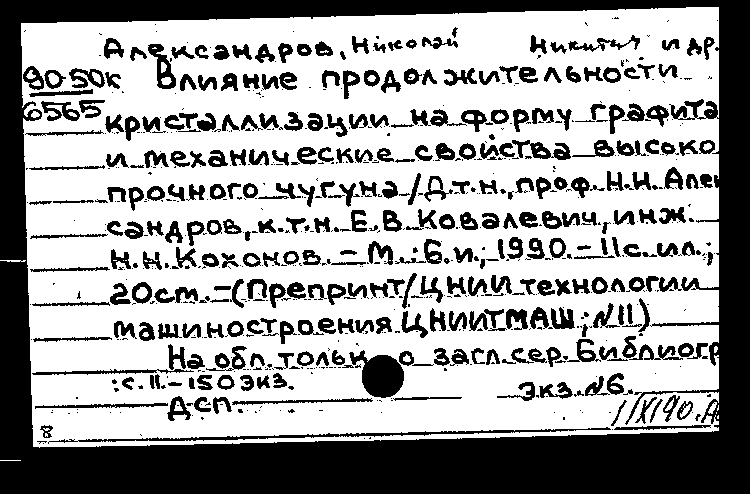 Александров, Николай Никитич и др.
90-50к Влияние продолжительности
6565 кристаллизации на форму графита
и механические свойства высоко
прочного чугуна / Д.т.н., проф. Н.Н. Алек
сандров, к.т.н. Е.В. Ковалевич, инж.
Н.Н. Кохонов. – М.: Б.и.; 1990. – 11 с. ил.;
20 cm. – (Препринт / ЦНИИ технологии
машиностроения ЦНИИТМАШ; №11)
На обл. тольк о загл. сер. Библиогр
: с. 11. – 150 экз.
Экз. №6.
ДСП.
8